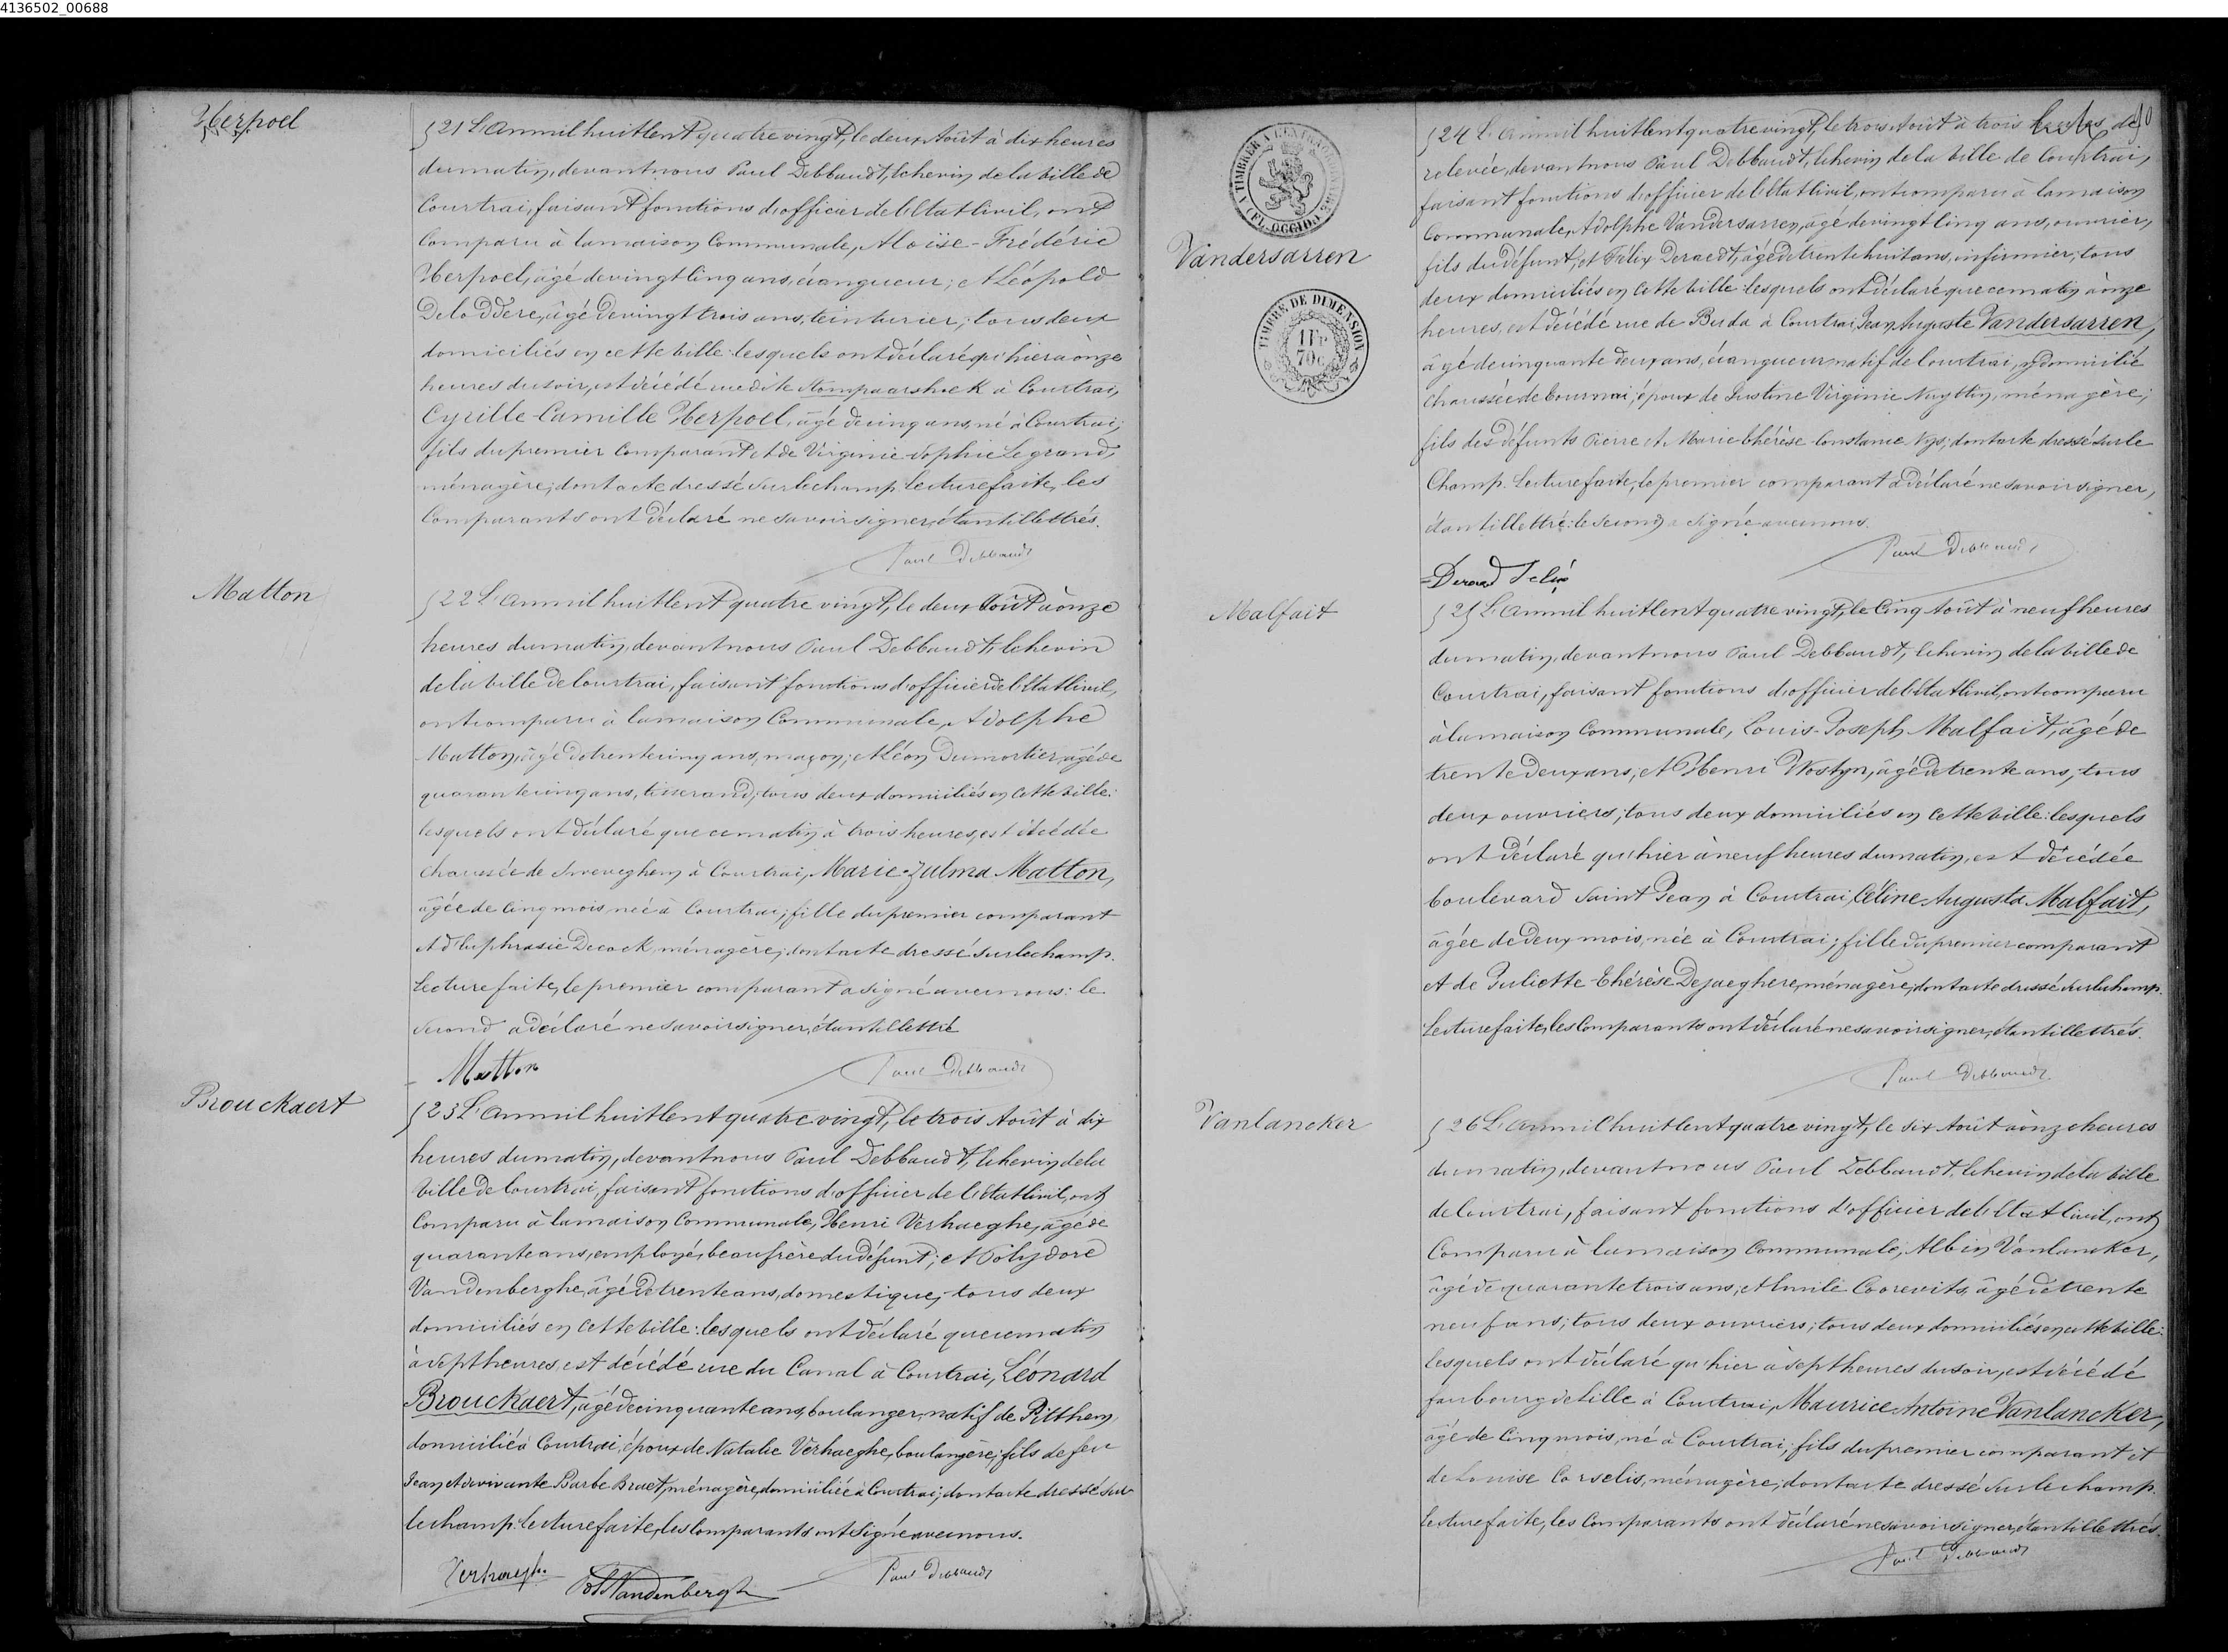 4136502_00688
Herpoel
521 L'an mil huit Cent quatre vingt, le deux Août à dix heures
du matin, devant nous Paul Debbaudt, Echevin de la ville de
Courtrai, faisant fonctions d'officier de l'Etat Civil, ont
Comparu à la maison Communale, Aloïse-Frédéric
Herpoel, âgé de vingt cinq ans, étangueur; et Léopold
Delaedere, âgé de vingt trois ans, teinturier; tous deux
domiciliés en cette ville: lesquels ont déclaré qu'hier à onze
heures du soir, est décédé rue dite Stompaershoek à Courtrai,
Cyrille-Camille Herpoel, âgé de cinq ans, né à Courtrai;
fils du premier Comparant et de Virginie-Sophie Legrand,
ménagère; dont acte dressé sur le champ. Lecture faite, les
Comparants ont déclaré ne savoir signer, étant illettrés.
Paul Debbaudt
Matton
522 L'an mil huit Cent quatre vingt, le deux Août à onze
heures du matin, devant nous Paul Debbaudt, Echevin
de la ville de Courtrai, faisant fonctions d'officier de l'Etat Civil,
ont comparu à la maison Communale, Adolphe
Matton, âgé de trente cinq ans, maçon; et Léon Dumortier, âgé de
quarante cinq ans, tisserand; tous deux domiciliés en cette ville:
lesquels ont déclaré que ce matin à trois heures, est décédée
chaussée de Sweveghem à Courtrai, Marie-Zulma Matton,
âgée de cinq mois, née à Courtrai; fille du premier comparant
et d'Euphrasie Decock, ménagère; dont acte dressé sur le champ.
Lecture faite, le premier comparant a signé avec nous: le
second a déclaré ne savoir signer, étant illettré
Matton Paul Debbaudt
Brouckaert
523 L'an mil huit Cent quatre vingt, le trois Août à dix
heures du matin, devant nous Paul Debbaudt, Echevin de la
ville de Courtrai, faisant fonctions d'officier de l'Etat Civil, ont
Comparu à la maison Communale, Henri Verhaeghe, âgé de
quarante ans, employé, beau frère du défunt; et Polydore
Vandenberghe, âgé de trente ans, domestique; tous deux
domiciliés en cette ville: lesquels ont déclaré que ce matin
à sept heures, est décédé rue du Canal à Courtrai, Léonard
Brouckaert, âgé de cinquante ans, boulanger, natif de Pitthem,
domicilié à Courtrai, époux de Natalie Verhaeghe, boulangère; fils de feu
Jean et de vivante Barbe Bruet, ménagère, domiciliée à Courtrai; dont acte dressé sur
le champ. Lecture faite, les Comparants ont signé avec nous.
Verhaeghe Pol Vandenberghe Paul Debbaudt
A TIMBRER A L'EXTRAORDINAIRE
FL. OCCID.
TIMBRE DE DIMENSION
1 FR
70 C
Vandersarren
524 L'an mil huit Cent quatre vingt, le trois Août à trois heures de
relevée, devant nous Paul Debbaudt, Echevin de la ville de Courtrai,
faisant fonctions d'officier de l'Etat Civil, ont comparu à la maison
Communale, Adolphe Vandersarren, âgé de vingt cinq ans, ouvrier,
fils du défunt; et Félix Deraedt, âgé de trente huit ans, infirmier; tous
deux domiciliés en cette ville: lesquels ont déclaré que ce matin à onze
heures, est décédé rue de Buda à Courtrai, Jean Auguste Vandersarren,
âgé de cinquante deux ans, étangueur, natif de Courtrai, y domicilié
chaussée de Tournai; époux de Justine Virginie Nuyttin, ménagère;
fils des défunts Pierre et Marie Thérèse Constance Nys; dont acte dressé sur le
Champ. Lecture faite, le premier comparant a déclaré ne savoir signer,
étant illettré: le second a signé avec nous.
Paul Debbaudt
Deraedt Félix
Malfait
525 L'an mil huit Cent quatre vingt, le Cinq Août à neuf heures
du matin, devant nous Paul Debbaudt, Echevin de la ville de
Courtrai, faisant fonctions d'officier de l'Etat Civil, ont comparu
à la maison Communale, Louis-Joseph Malfait, âgé de
trente deux ans; et Henri Wostyn, âgé de trente ans; tous
deux ouvriers; tous deux domiciliés en cette ville: lesquels
ont déclaré qu'hier à neuf heures du matin, est décédée
boulevard Saint Jean à Courtrai, Céline-Augusta Malfait,
âgée de deux mois, née à Courtrai; fille du premier comparant
et de Juliette-Thérèse Dejaeghere, ménagère; dont acte dressé sur le champ.
Lecture faite, les Comparants ont déclaré ne savoir signer, étant illettrés.
Paul Debbaudt
Vanlancker
526 L'an mil huit Cent quatre vingt, le six Août à onze heures
du matin, devant nous Paul Debbaudt, Echevin de la ville
de Courtrai, faisant fonctions d'officier de l'Etat Civil, ont
Comparu à la maison Communale, Albin Vanlancker,
âgé de quarante trois ans; et Emile Coorevits, âgé de trente
neuf ans; tous deux ouvriers; tous deux domiciliés en cette ville:
lesquels ont déclaré qu'hier à sept heures du soir, est décédé
faubourg de Lille à Courtrai, Maurice Antoine Vanlancker,
âgé de Cinq mois, né à Courtrai; fils du premier comparant et
de Louise Corselis, ménagère; dont acte dressé sur le champ.
Lecture faite, les Comparants ont déclaré ne savoir signer, étant illettrés.
Paul Debbaudt